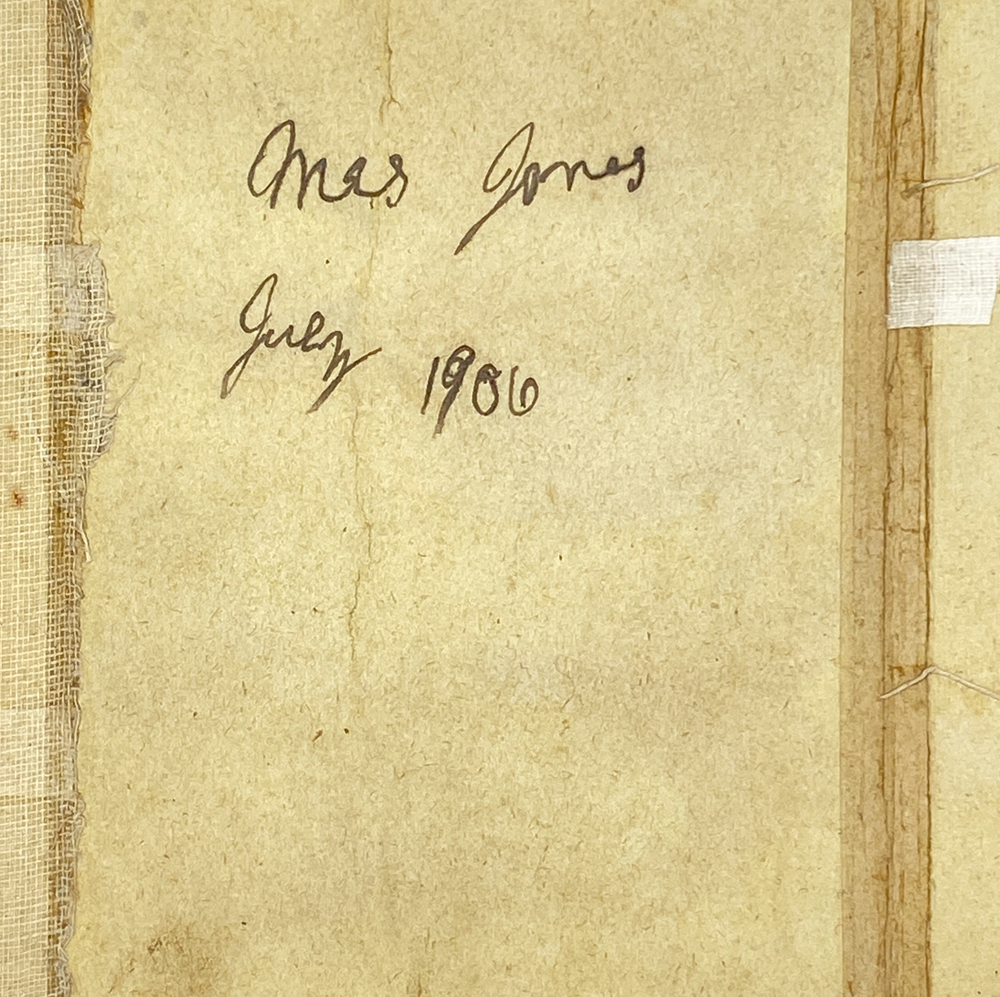 Mrs Jones
July 1906